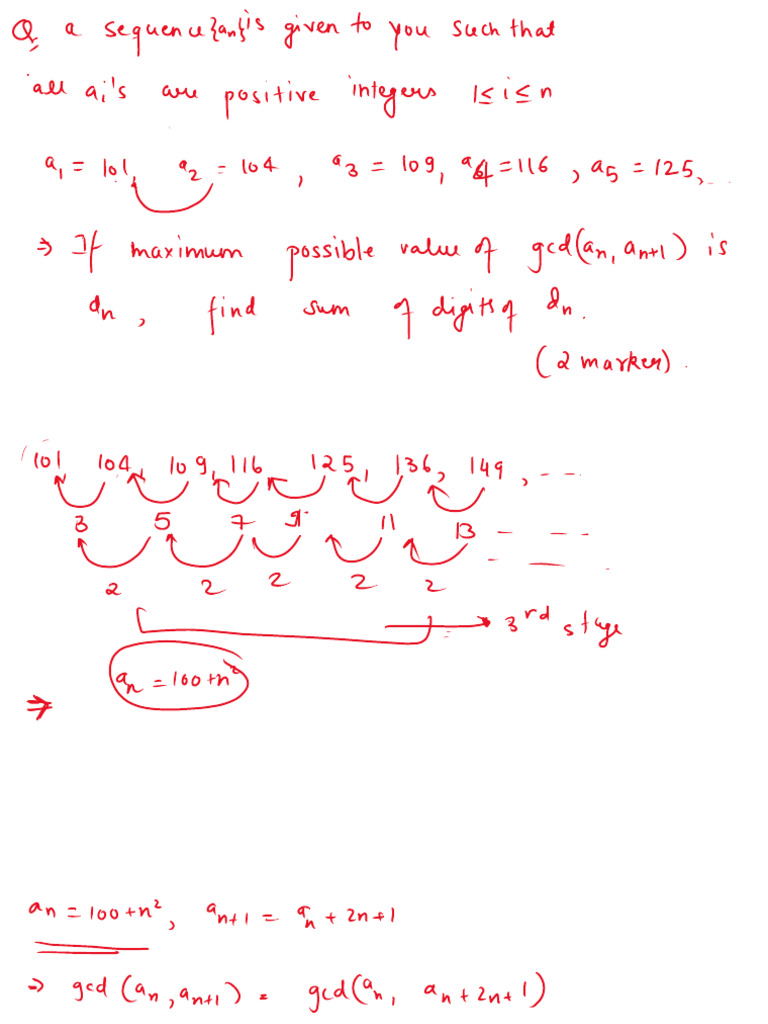 Q a sequence {an} is given to you such that
all ai's are positive integers 1≤i≤n
a1 = 101, a2 = 104, a3 = 109, a4 = 116, a5 = 125, ...
⇒ If maximum possible value of gcd(an, an+1) is
dn, find sum of digits of dn.
(2 marker).
101 104, 109, 116 125, 136, 149, ---
3 5 7 9 11 13 - - --
2 2 2 2 2 - — - -
→ 3rd stage
an = 100+n²
⇒
an = 100+n², an+1 = an + 2n+1
⇒ gcd (an, an+1) = gcd(an, an+2n+1)